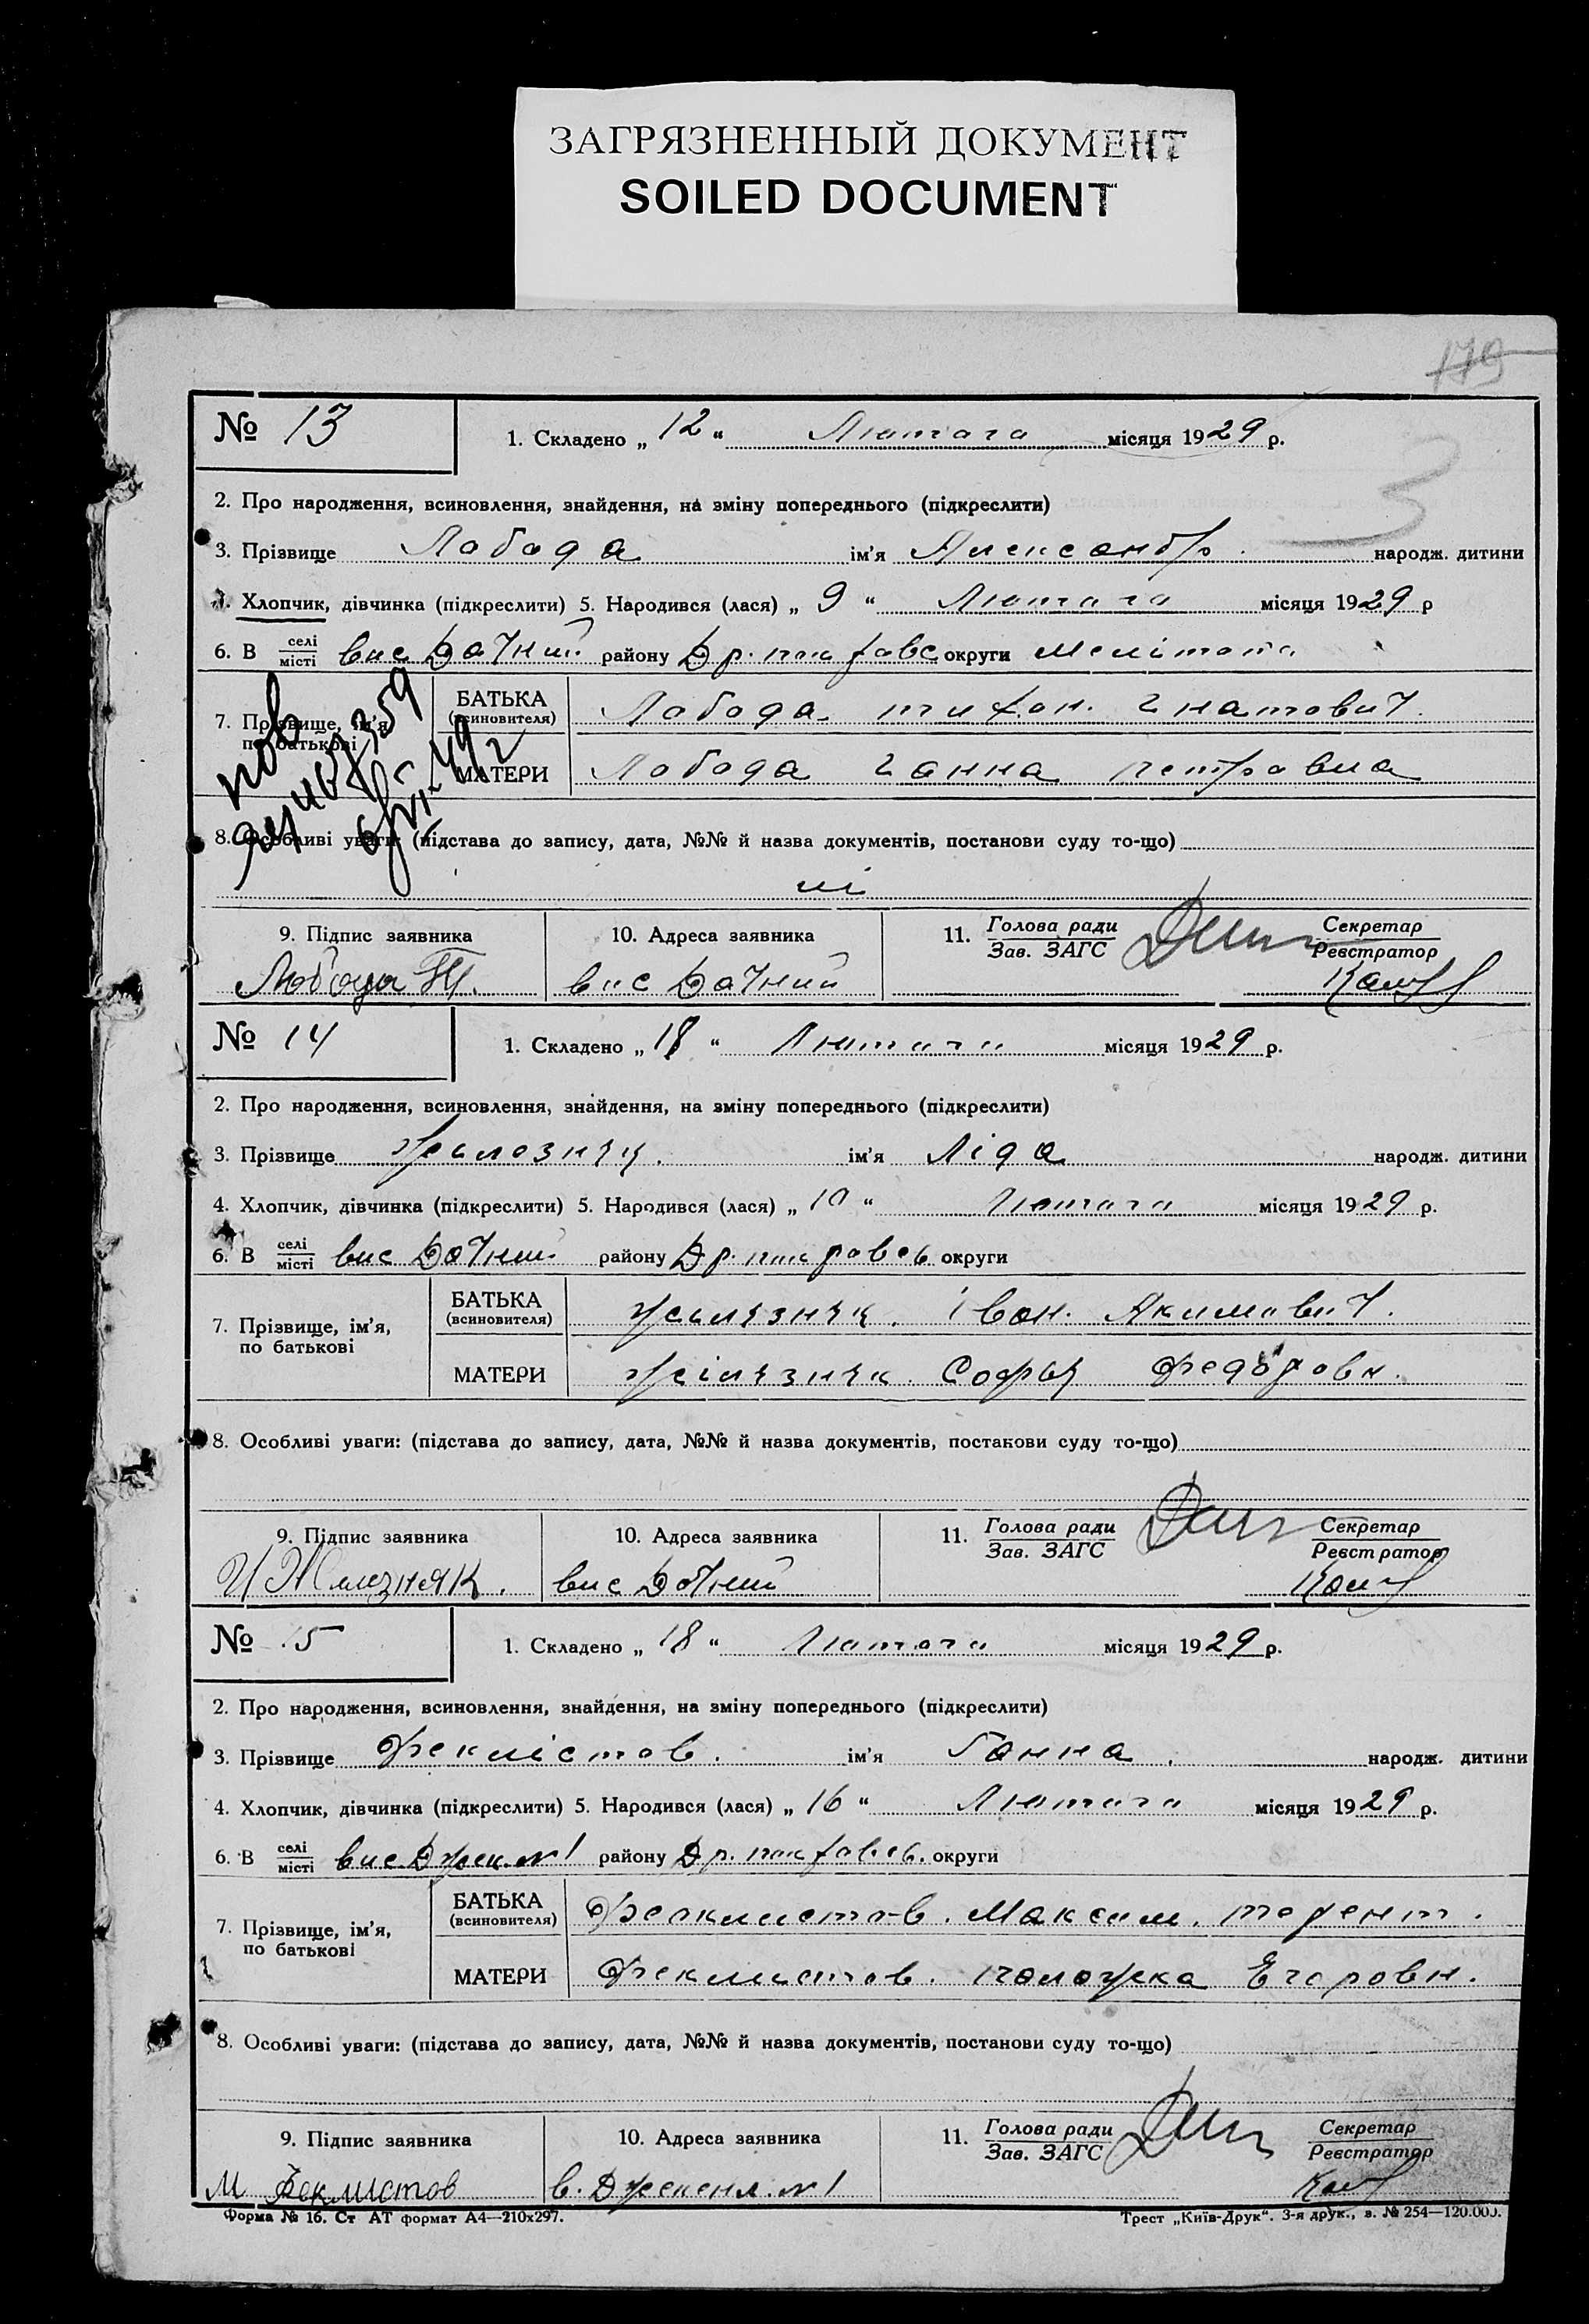 ЗАГРЯЗНЕННЫЙ ДОКУМЕНТ
SOILED DOCUMENT
179
3
№ 13
1. Складено „ 12 “ Лютого місяця 1929 р.
2. Про народження, всиновлення, знайдення, на зміну попереднього (підкреслити)
3. Прізвище Лобода ім'я Александр народж. дитини
4. Хлопчик, дівчинка (підкреслити) 5. Народився (лася) „ 9 “ Лютого місяця 1929 р
6. В селі/місті вис Дачний району Др. покровс округи Мелітопа
7. Прізвище, ім'я, по батькові
БАТЬКА (всиновителя) Лобода тихон. Гнатович.
МАТЕРИ Лобода Ганна петровна
8. Особливі уваги: (підстава до запису, дата, №№ й назва документів, постанови суду то-що)
ні
9. Підпис заявника
10. Адреса заявника
11. Голова ради/Зав. ЗАГС
Секретар/Реєстратор
Лобода Т. вис Дачний
№ 14
1. Складено „ 18 “ Лютого місяця 1929 р.
2. Про народження, всиновлення, знайдення, на зміну попереднього (підкреслити)
3. Прізвище ім'я Ліда народж. дитини
4. Хлопчик, дівчинка (підкреслити) 5. Народився (лася) „ 10 “ Лютого місяця 1929 р.
6. В селі/місті вис Дачний району Др. покровсь округи
7. Прізвище, ім'я, по батькові
БАТЬКА (всиновителя) Жилязняк. Іван. Акимович.
МАТЕРИ Жілязняк. Софья Федоровн.
8. Особливі уваги: (підстава до запису, дата, №№ й назва документів, постанови суду то-що)
9. Підпис заявника
10. Адреса заявника
11. Голова ради/Зав. ЗАГС
Секретар/Реєстратор
И Жилизняк. вис Дачний
№ 15
1. Складено „ 18 “ Лютого місяця 1929 р.
2. Про народження, всиновлення, знайдення, на зміну попереднього (підкреслити)
3. Прізвище Феклістов. ім'я Ганна народж. дитини
4. Хлопчик, дівчинка (підкреслити) 5. Народився (лася) „ 16 “ Лютого місяця 1929 р.
6. В селі/місті вис Джек. № 1 району Др. покровсь. округи
7. Прізвище, ім'я, по батькові
БАТЬКА (всиновителя) Феоклистов. Максим.
МАТЕРИ Феклистов. Егоровн.
8. Особливі уваги: (підстава до запису, дата, №№ й назва документів, постанови суду то-що)
9. Підпис заявника
10. Адреса заявника
11. Голова ради/Зав. ЗАГС
Секретар/Реєстратор
М Феклистов в. № 1
Форма № 16. Ст АТ формат А4—210х297.
Трест „Київ-Друк“. 3-я друк., з. № 254—120.000.